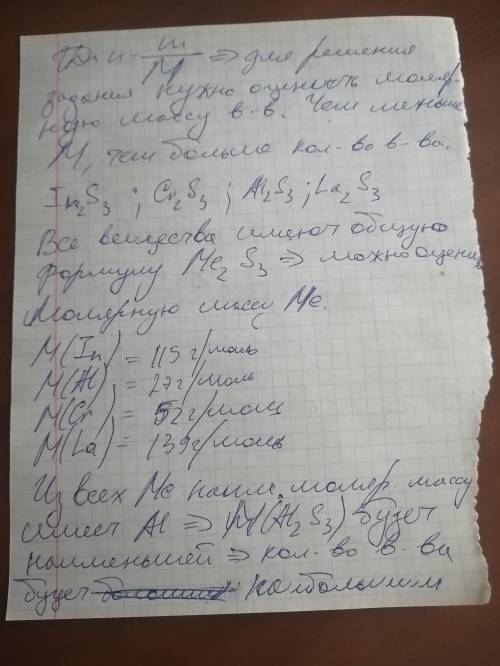 n = m/M ⇒ для решения
задания нужно оценить моляр-
ную массу в-в. Чем меньше
M, тем больше кол-во в-ва.
In₂S₃ ; Cr₂S₃ ; Al₂S₃ ; La₂S₃
Все вещества имеют общую
формулу Me₂S₃ ⇒ можно оценить
молярную массу Me.
M(In) = 115 г/моль
M(Al) = 27 г/моль
M(Cr) = 52 г/моль
M(La) = 139 г/моль
Из всех Me наим. моляр. массу
имеет Al ⇒ M(Al₂S₃) будет
наименьшей ⇒ кол-во в-ва
будет наибольшим